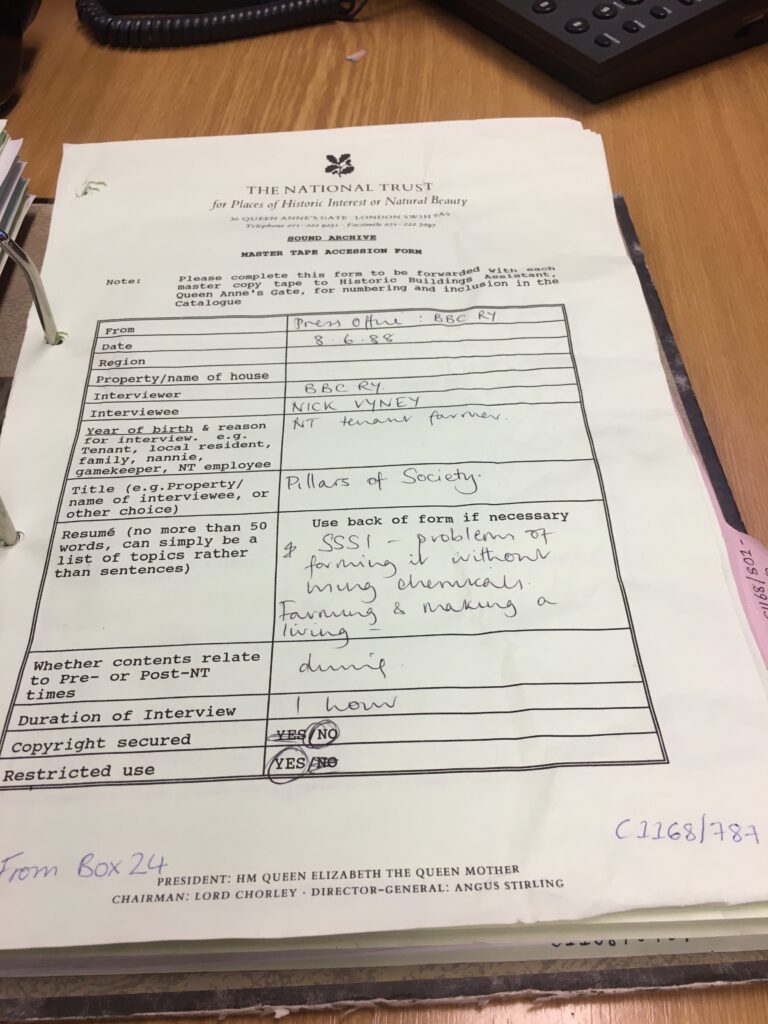 THE NATIONAL TRUST
for Places of Historic Interest or Natural Beauty
36 QUEEN ANNE'S GATE · LONDON SW1H 9AS
Telephone 071-222 9251 · Facsimile 071-222 5097
SOUND ARCHIVE
MASTER TAPE ACCESSION FORM
Note: Please complete this form to be forwarded with each
master copy tape to Historic Buildings Assistant,
Queen Anne's Gate, for numbering and inclusion in the
Catalogue
From Press Office : BBC RY
Date 8.6.88
Region
Property/name of house
Interviewer BBC RY.
Interviewee NICK VYNEY
Year of birth & reason NT tenant farmer.
for interview. e.g.
Tenant, local resident,
family, nannie,
gamekeeper, NT employee
Title (e.g.Property/ Pillars of Society.
name of interviewee, or
other choice)
Resumé (no more than 50 Use back of form if necessary
words, can simply be a SSSI - problems of
list of topics rather farming it without
than sentences) using chemicals.
Farming & making a
living -
Whether contents relate during
to Pre- or Post-NT
times
Duration of Interview 1 hour
Copyright secured YES/NO
Restricted use YES/NO
C1168/787
From Box 24
PRESIDENT: HM QUEEN ELIZABETH THE QUEEN MOTHER
CHAIRMAN: LORD CHORLEY · DIRECTOR-GENERAL: ANGUS STIRLING